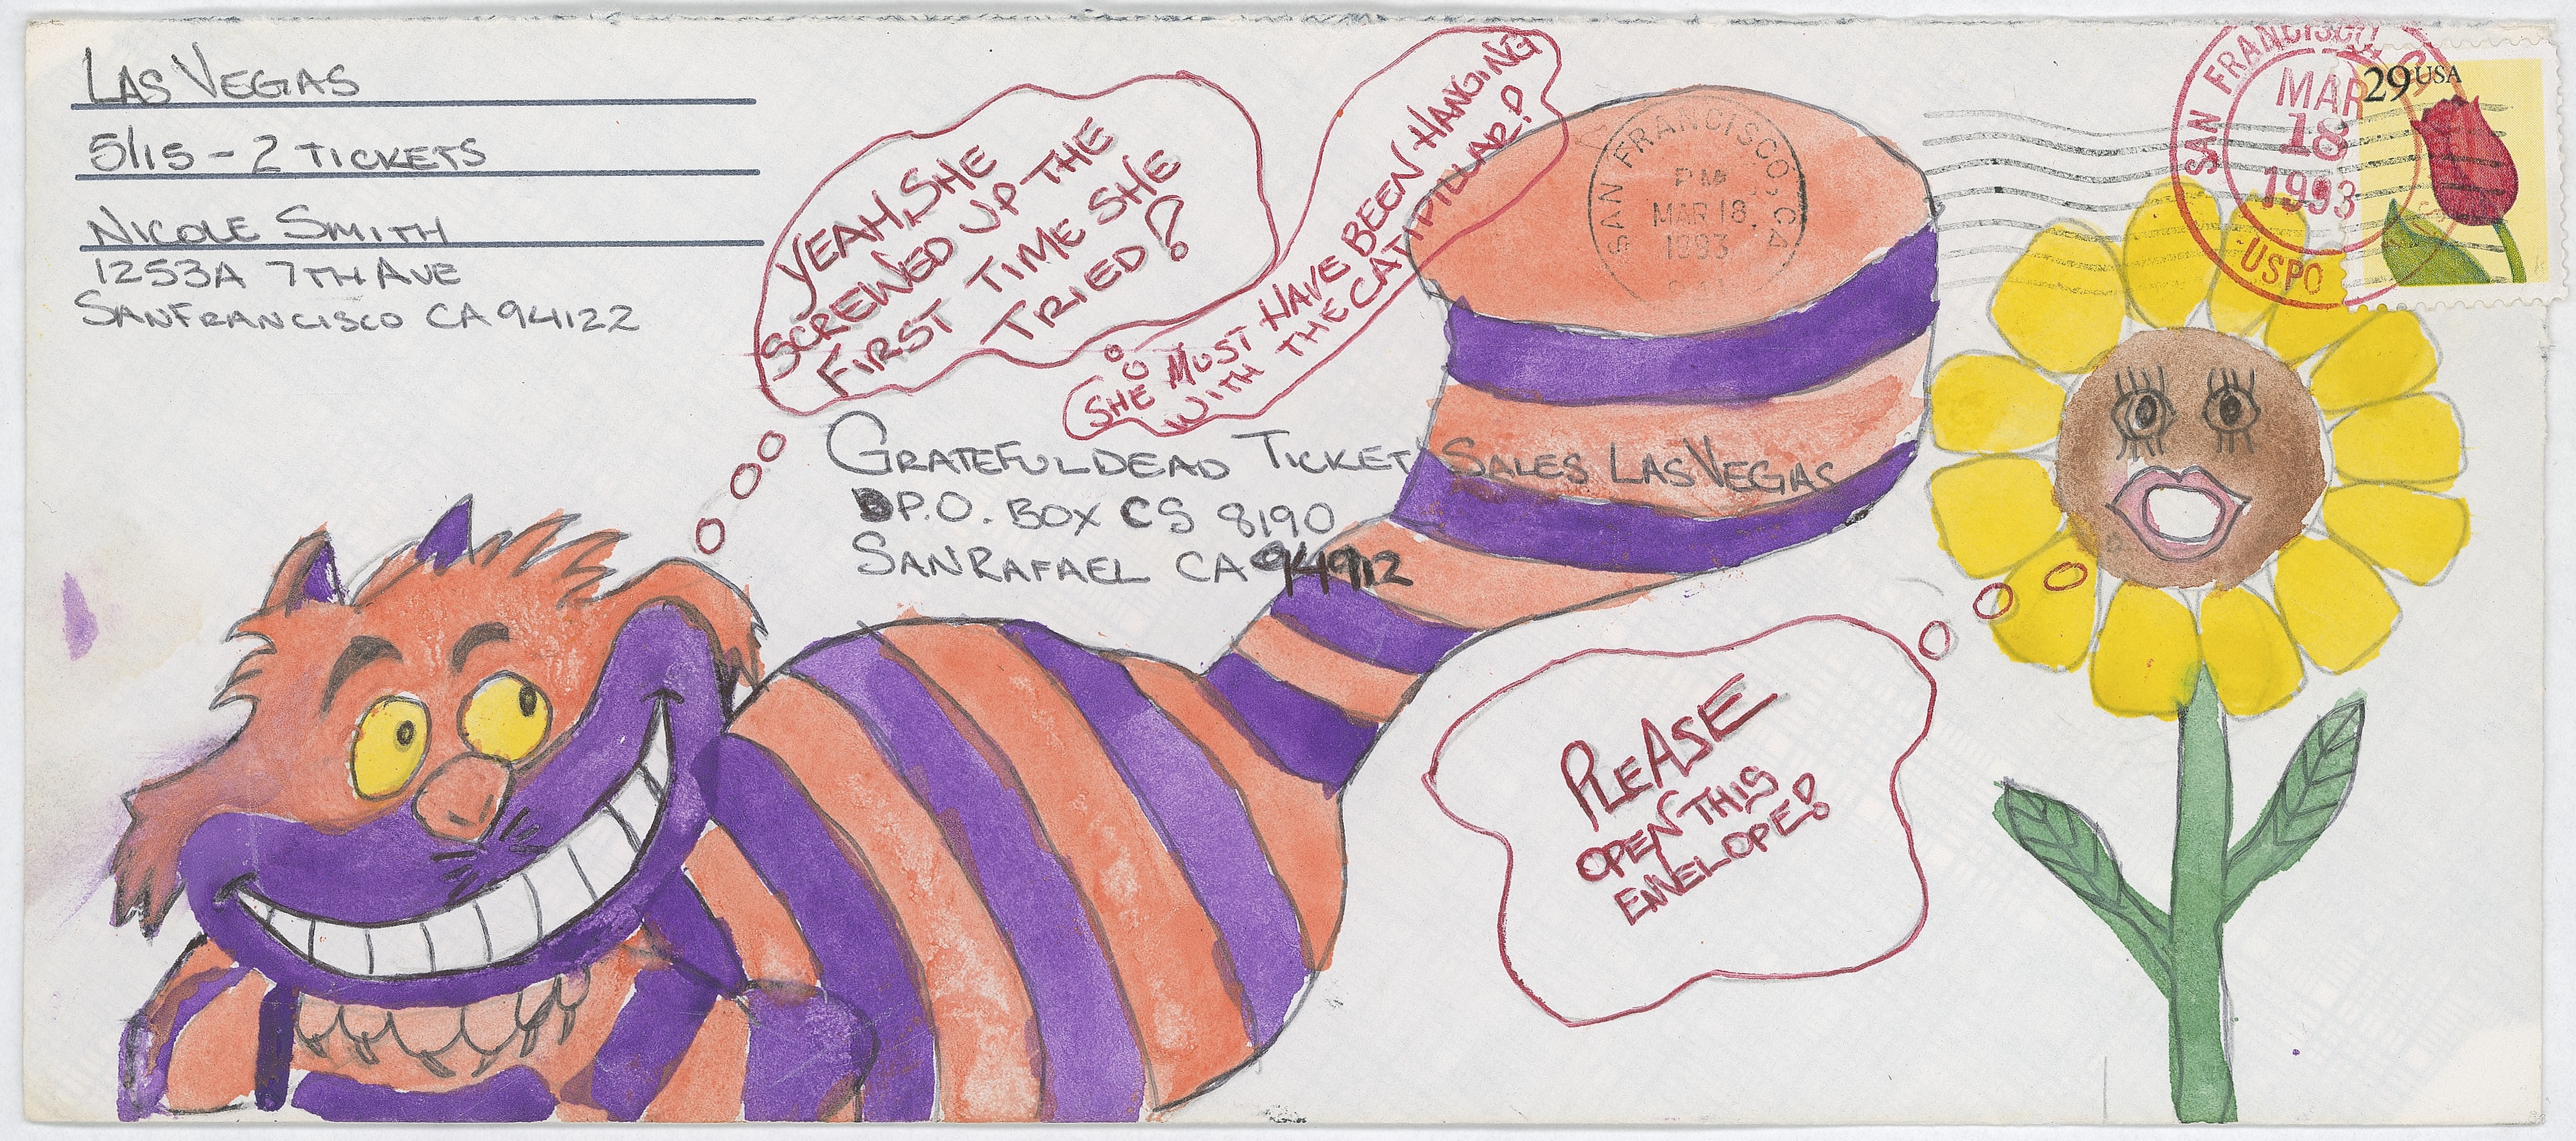 LAS VEGAS
5/15 - 2 TICKETS
NICOLE SMITH
1253A 7TH AVE
SAN FRANCISCO CA 94122
YEAH, SHE
SCREWED UP THE
FIRST TIME SHE
TRIED!
SHE MUST HAVE BEEN HANGING
WITH THE CATIPILLAR!
SAN FRANCISCO, CA
PM
MAR 18,
1993
SAN FRANCISCO
MAR
18
1993
USPO
29 USA
GRATEFUL DEAD TICKET SALES LAS VEGAS
P.O. BOX CS 8190
SAN RAFAEL CA 94912
PLEASE
OPEN THIS
ENVELOPE!